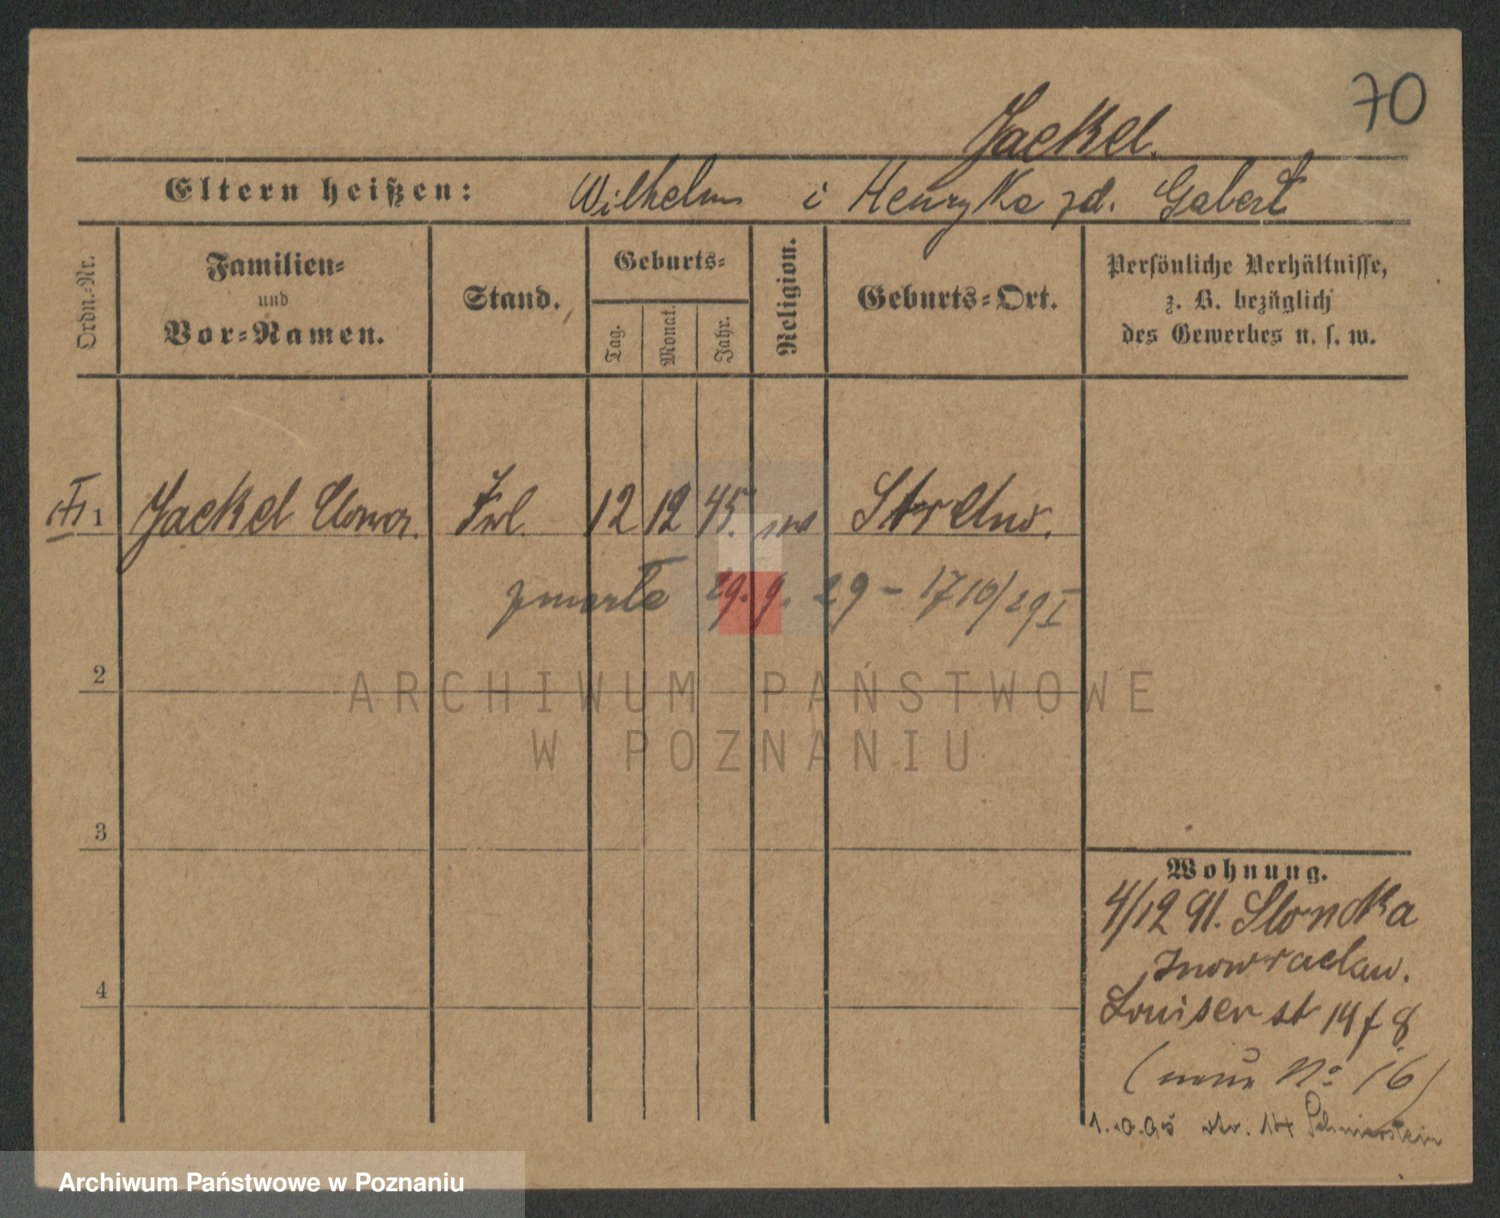 70
Jaekel.
Eltern heißen: Wilhelm i Henryka zd. Gabert
Ordn.-Nr.
Familien-
und
Vor-Namen.
Stand.
Geburts-
Tag.
Monat.
Jahr.
Religion.
Geburts-Ort.
Persönliche Verhältnisse,
z. B. bezüglich
des Gewerbes u. s. w.
1 Jaekel Clara. Frl. 12 12 45. ew Strelno.
zmarła 29. 9. 29 - 1710/29 I
2
ARCHIWUM PAŃSTWOWE
W POZNANIU
3
Wohnung.
4/12 91. Sloncka
Inowraclaw.
4
Louisenst 14 f 8
(neue No 16)
str. 14
Archiwum Państwowe w Poznaniu